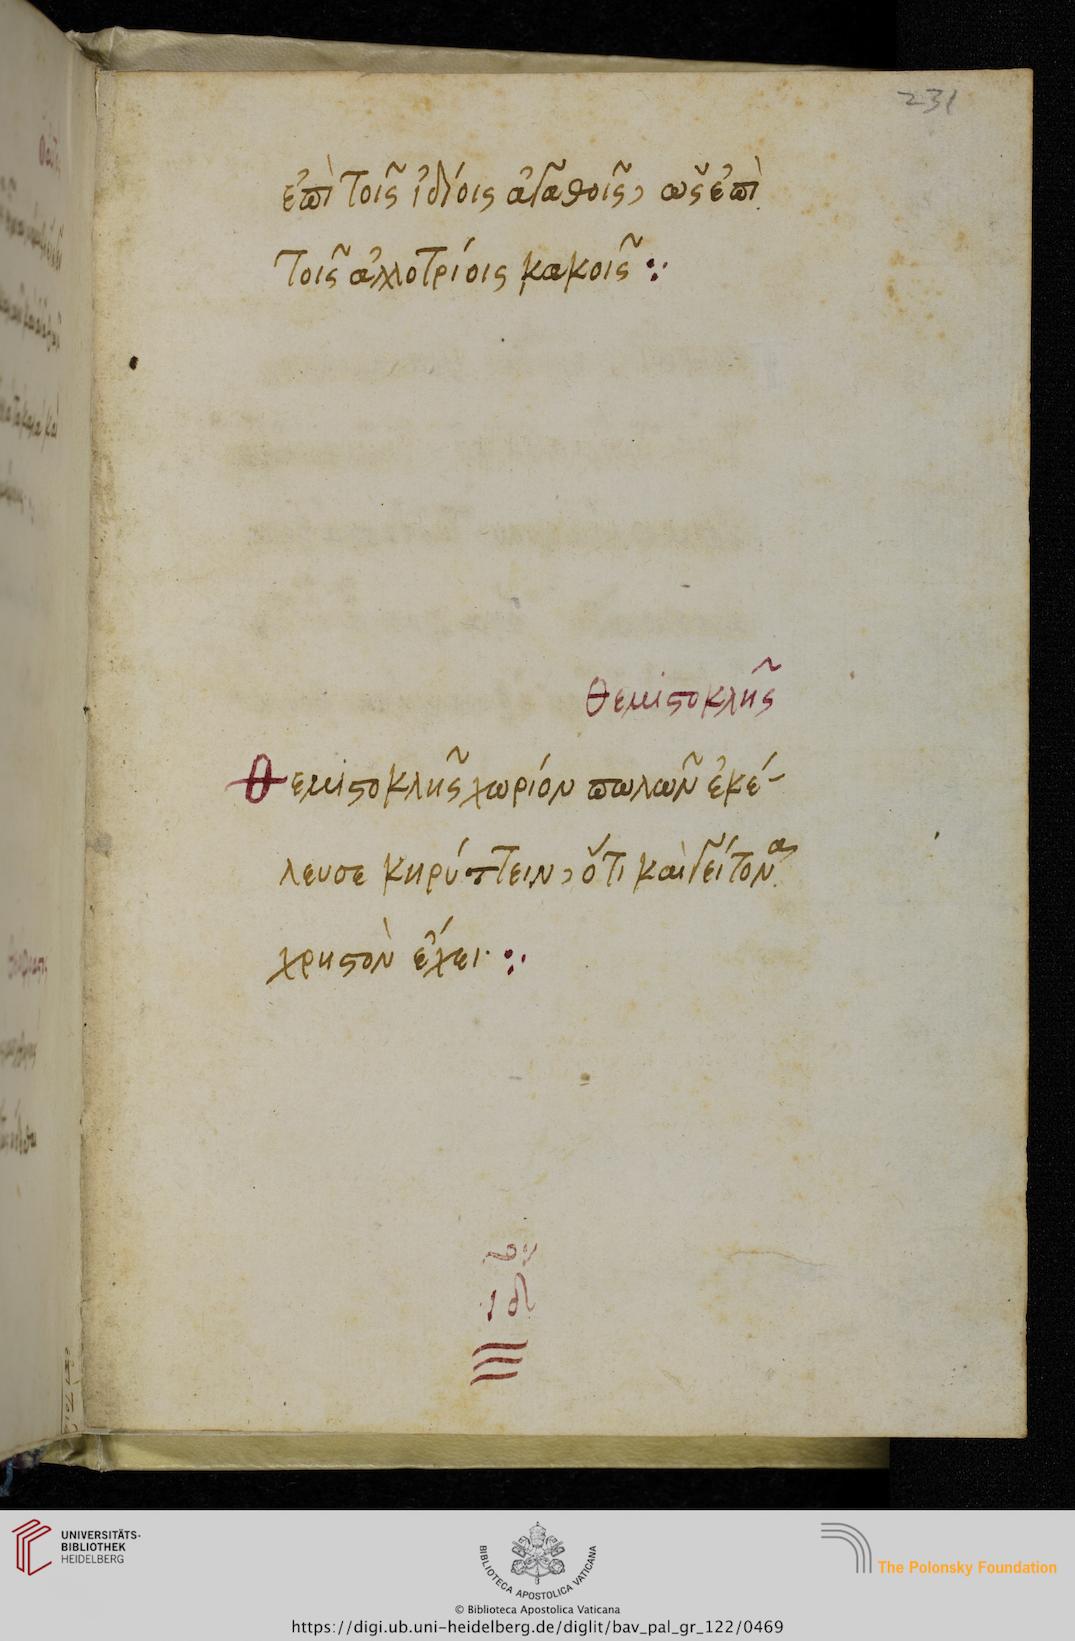 231
ἐπὶ τοῖς ἰδίοις ἀγαθοῖς, ὡς ἐπὶ
τοῖς ἀλλοτρίοις κακοῖς :·
Θεμιστοκλῆς
Θεμιστοκλῆς χωρίον πωλῶν ἐκέ-
λευσε κηρύττειν, ὅτι καὶ γείτονα
χρηστὸν ἔχει :·
UNIVERSITÄTS-
BIBLIOTHEK
HEIDELBERG
BIBLIOTECA APOSTOLICA VATICANA
The Polonsky Foundation
© Biblioteca Apostolica Vaticana
https://digi.ub.uni-heidelberg.de/diglit/bav_pal_gr_122/0469